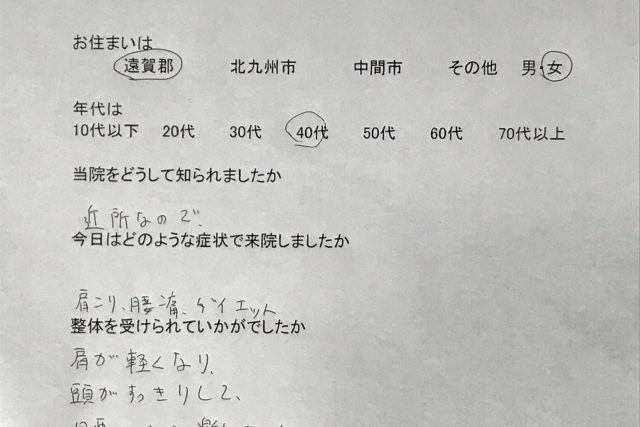 お住まいは
遠賀郡 北九州市 中間市 その他 男・女
年代は
10代以下 20代 30代 40代 50代 60代 70代以上
当院をどうして知られましたか
近所なので.
今日はどのような症状で来院しましたか
肩こり、腰痛、ダイエット
整体を受けられていかがでしたか
肩が軽くなり、
頭がすっきりして、